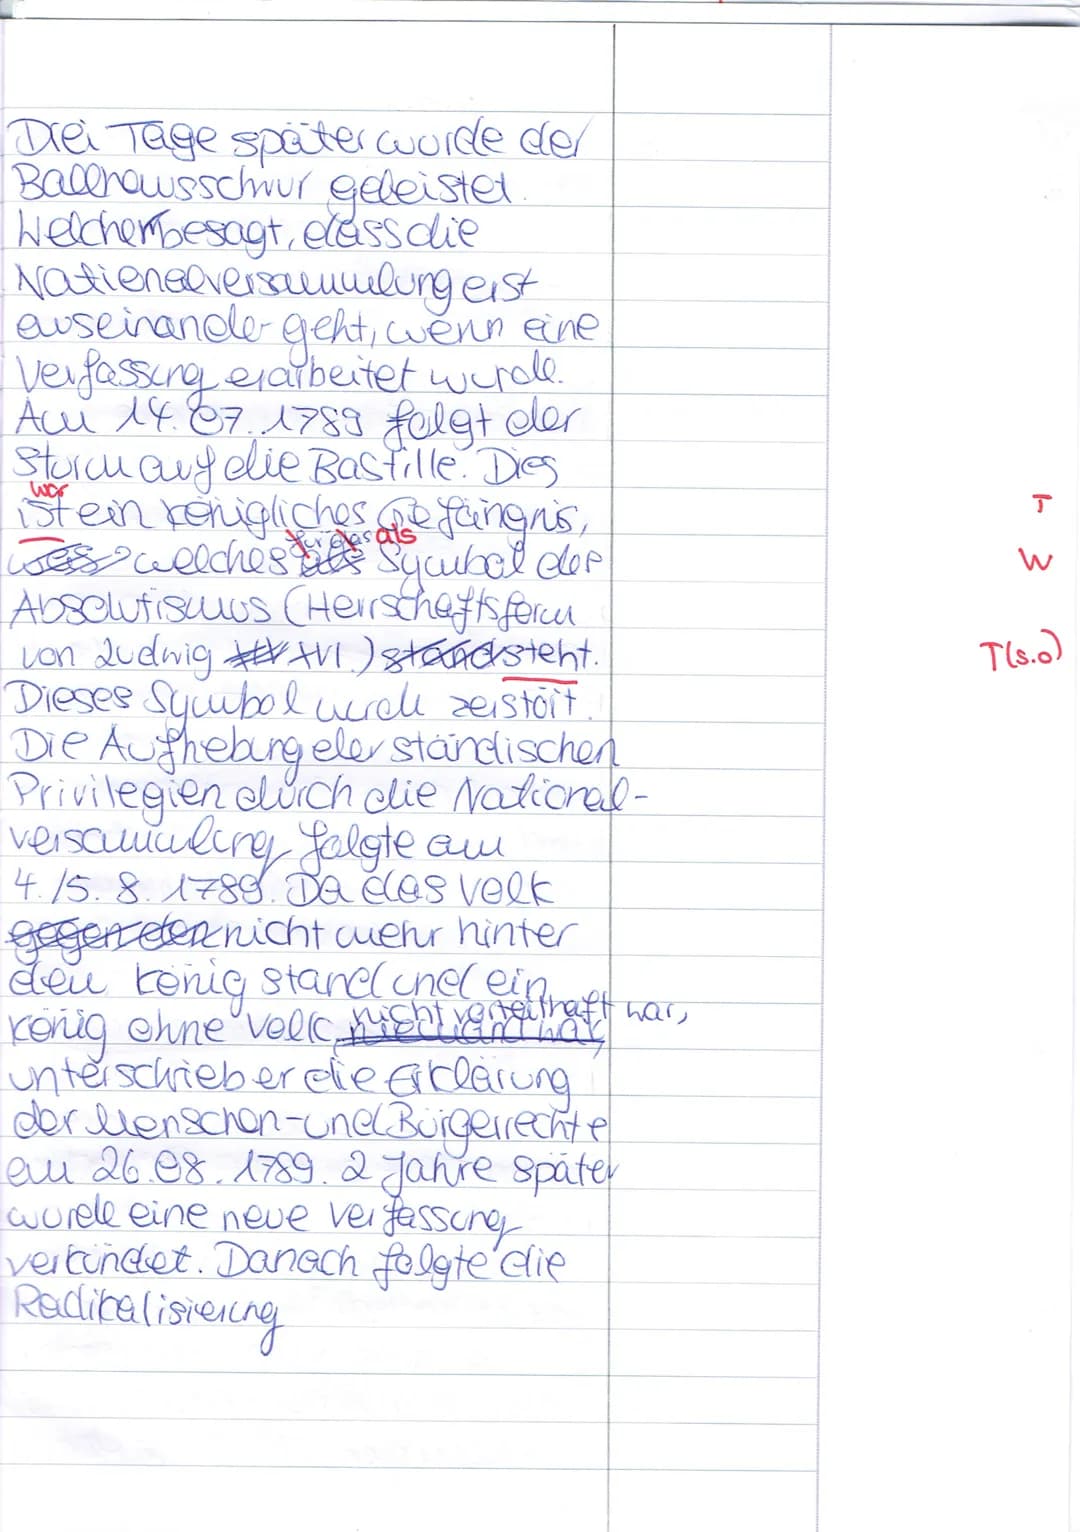 Drei Tage später wurde der
Ballhausschwur geleistet.
Welcher besagt, dass die
Nationalversammlung erst
auseinander geht, wenn eine
Verfassung erarbeitet wurde.
Am 14.07.1789 folgt der
Sturm auf die Bastille. Dies
war
ist ein königliches Gefängnis, T
für das als
was welches als Symbol der W
Absolutismus (Herrschaftsform
von Ludwig XVI.) stand steht. T(s.o)
Dieses Symbol wurde zerstört.
Die Aufhebung der ständischen
Privilegien durch die National-
versammlung folgte am
4./5.8.1789. Da das Volk
gegen den nicht mehr hinter
dem König stand und ein
nicht vorteilhaft war,
König ohne Volk niemand war,
unterschrieb er die Erklärung
der Menschen- und Bürgerrechte
am 26.08.1789. 2 Jahre später
wurde eine neue Verfassung
verkündet. Danach folgte die
Radikalisierung